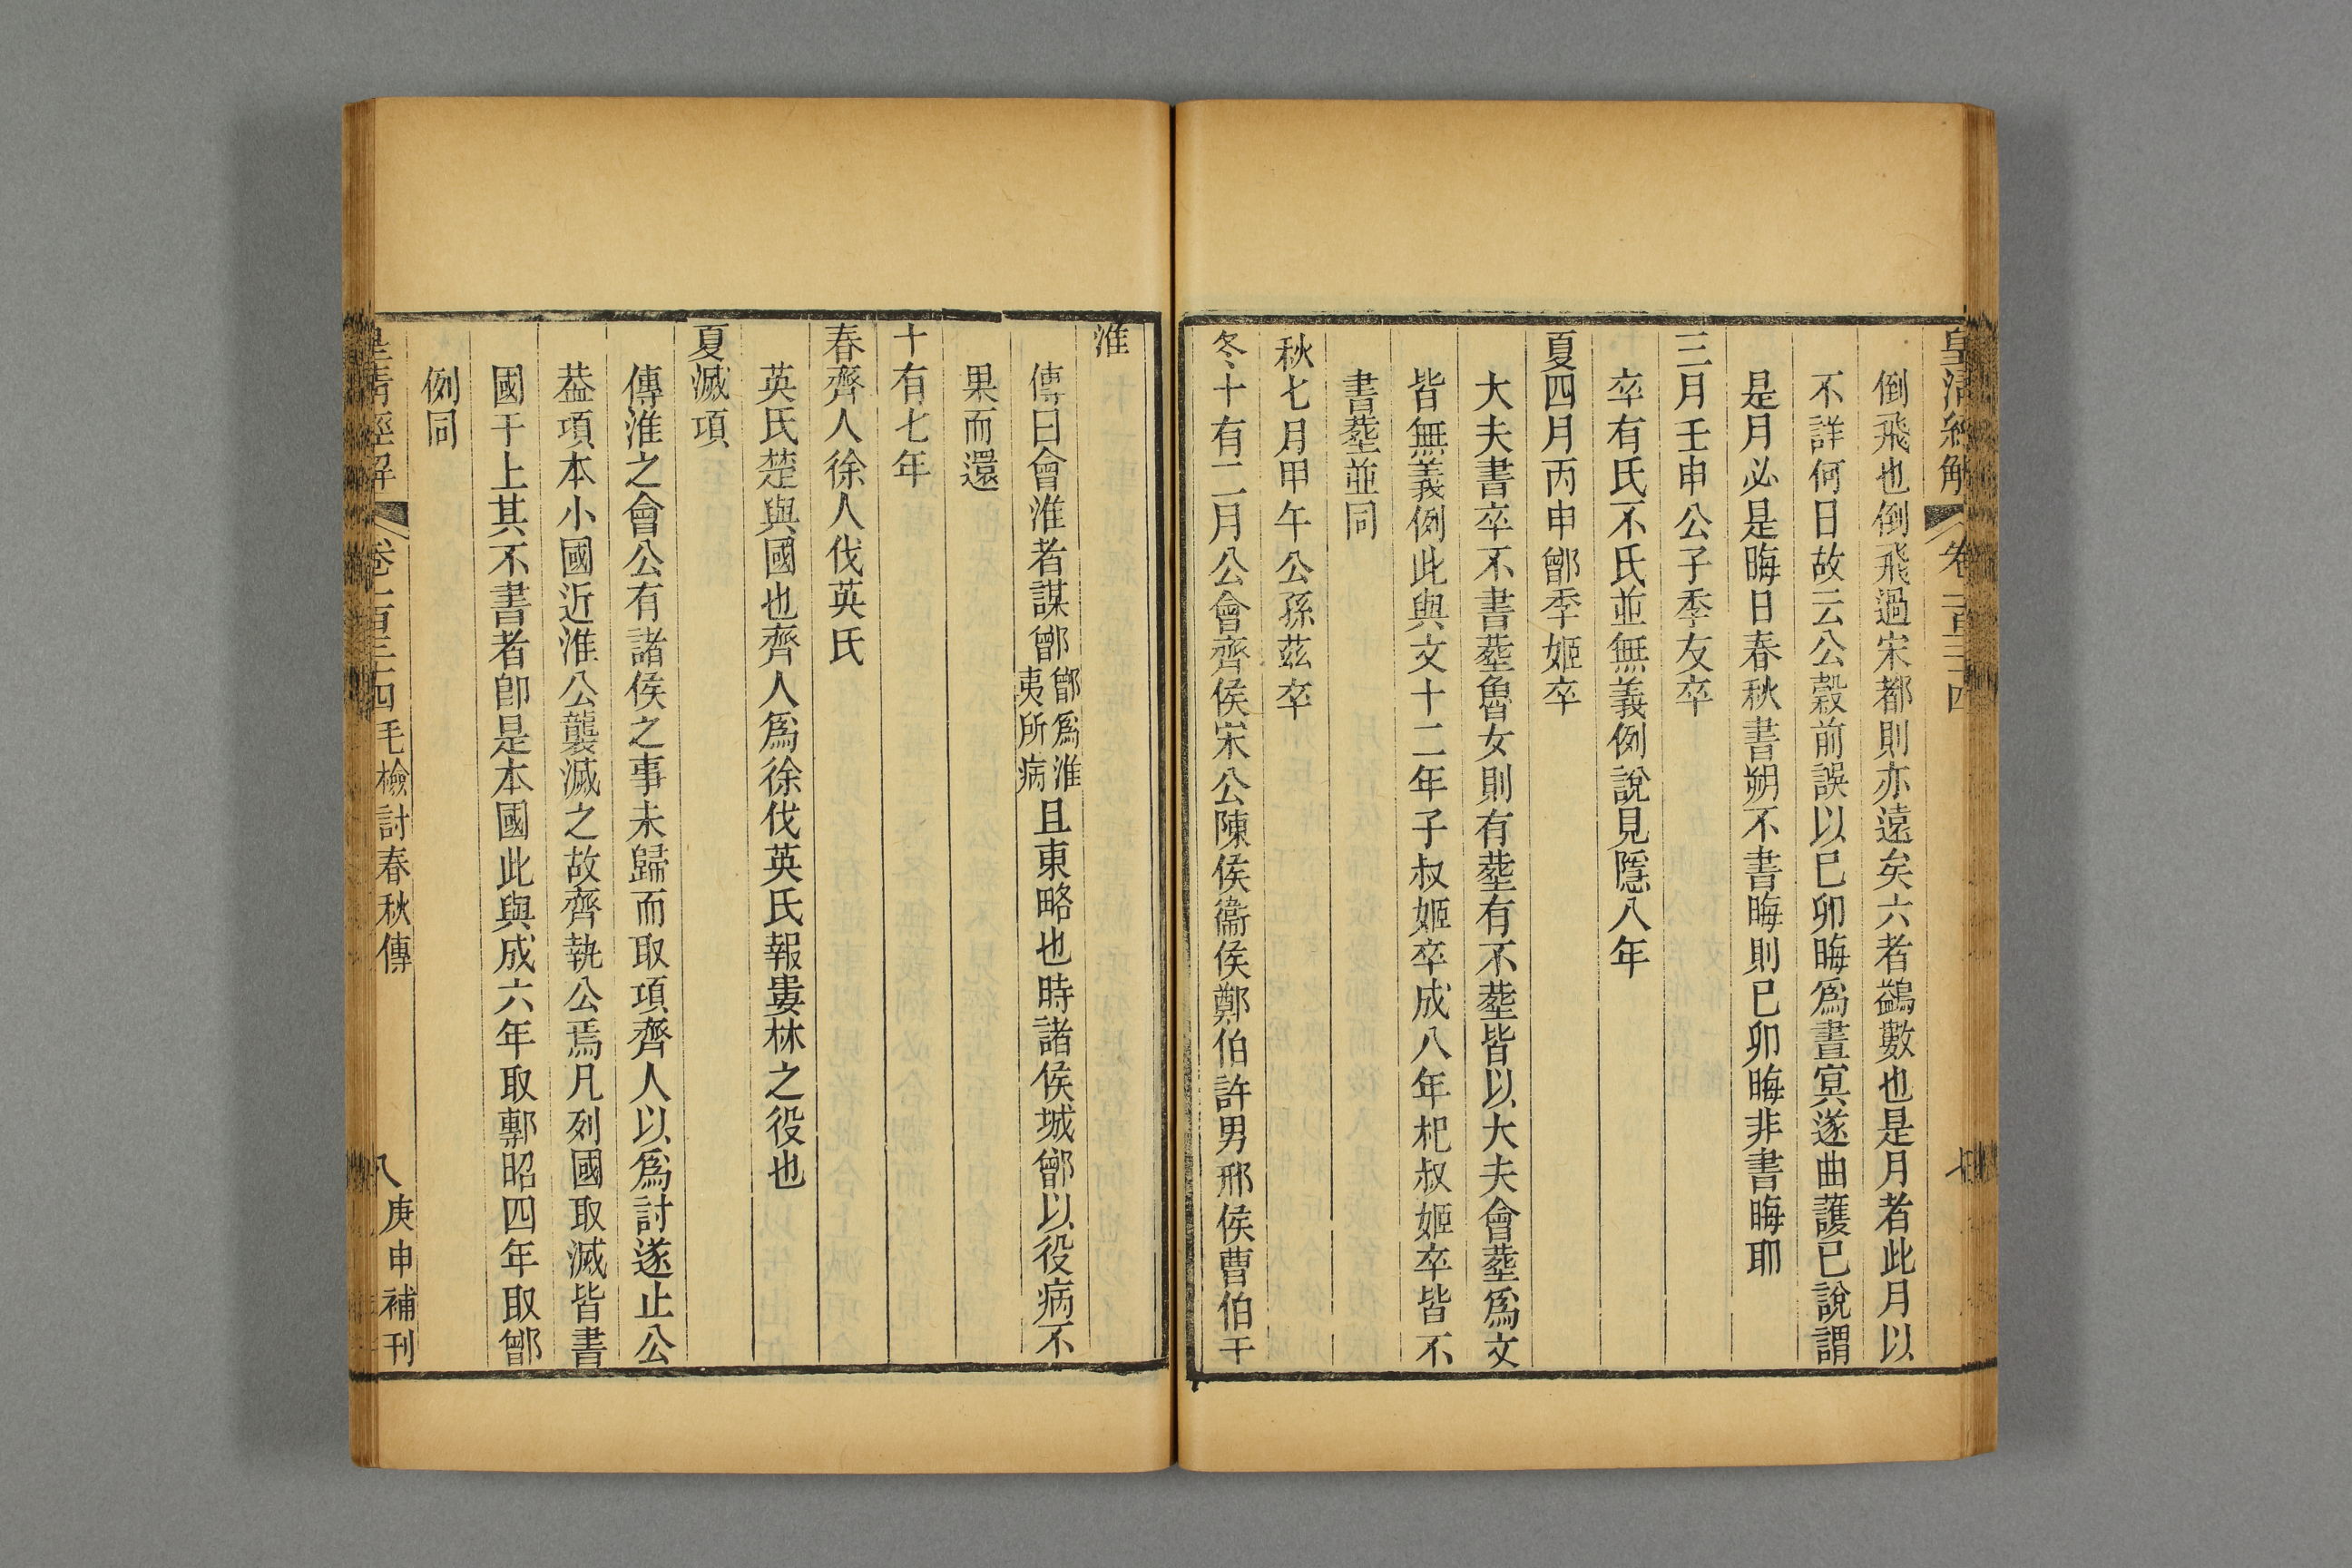 皇清經解　卷一百三十四　七
倒飛也倒飛過宋都則亦遠矣六者鷁數也是月者此月以
不詳何日故云公穀前誤以已卯晦爲晝㝠遂曲護已說謂
是月必是晦日春秋書朔不書晦則已卯晦非書晦耶
三月壬申公子季友卒
卒有氏不氏並無義例說見隱八年
夏四月丙申鄫季姬卒
大夫書卒不書塟魯女則有塟有不塟皆以大夫會塟爲文
皆無義例此與文十二年子叔姬卒成八年杞叔姬卒皆不
書塟並同
秋七月甲午公孫茲卒
冬十有二月公會齊侯宋公陳侯衞侯鄭伯許男邢侯曹伯于
淮
傳曰會淮者謀鄫鄫爲淮夷所病且東略也時諸侯城鄫以役病不
果而還
十有七年
春齊人徐人伐英氏
英氏楚與國也齊人爲徐伐英氏報婁林之役也
夏滅項
傳淮之會公有諸侯之事未歸而取項齊人以爲討遂止公
葢項本小國近淮公襲滅之故齊執公焉凡列國取滅皆書
國于上其不書者卽是本國此與成六年取鄟昭四年取鄫
例同
皇清經解　卷一百三十四　毛檢討春秋傳　八　庚申補刊